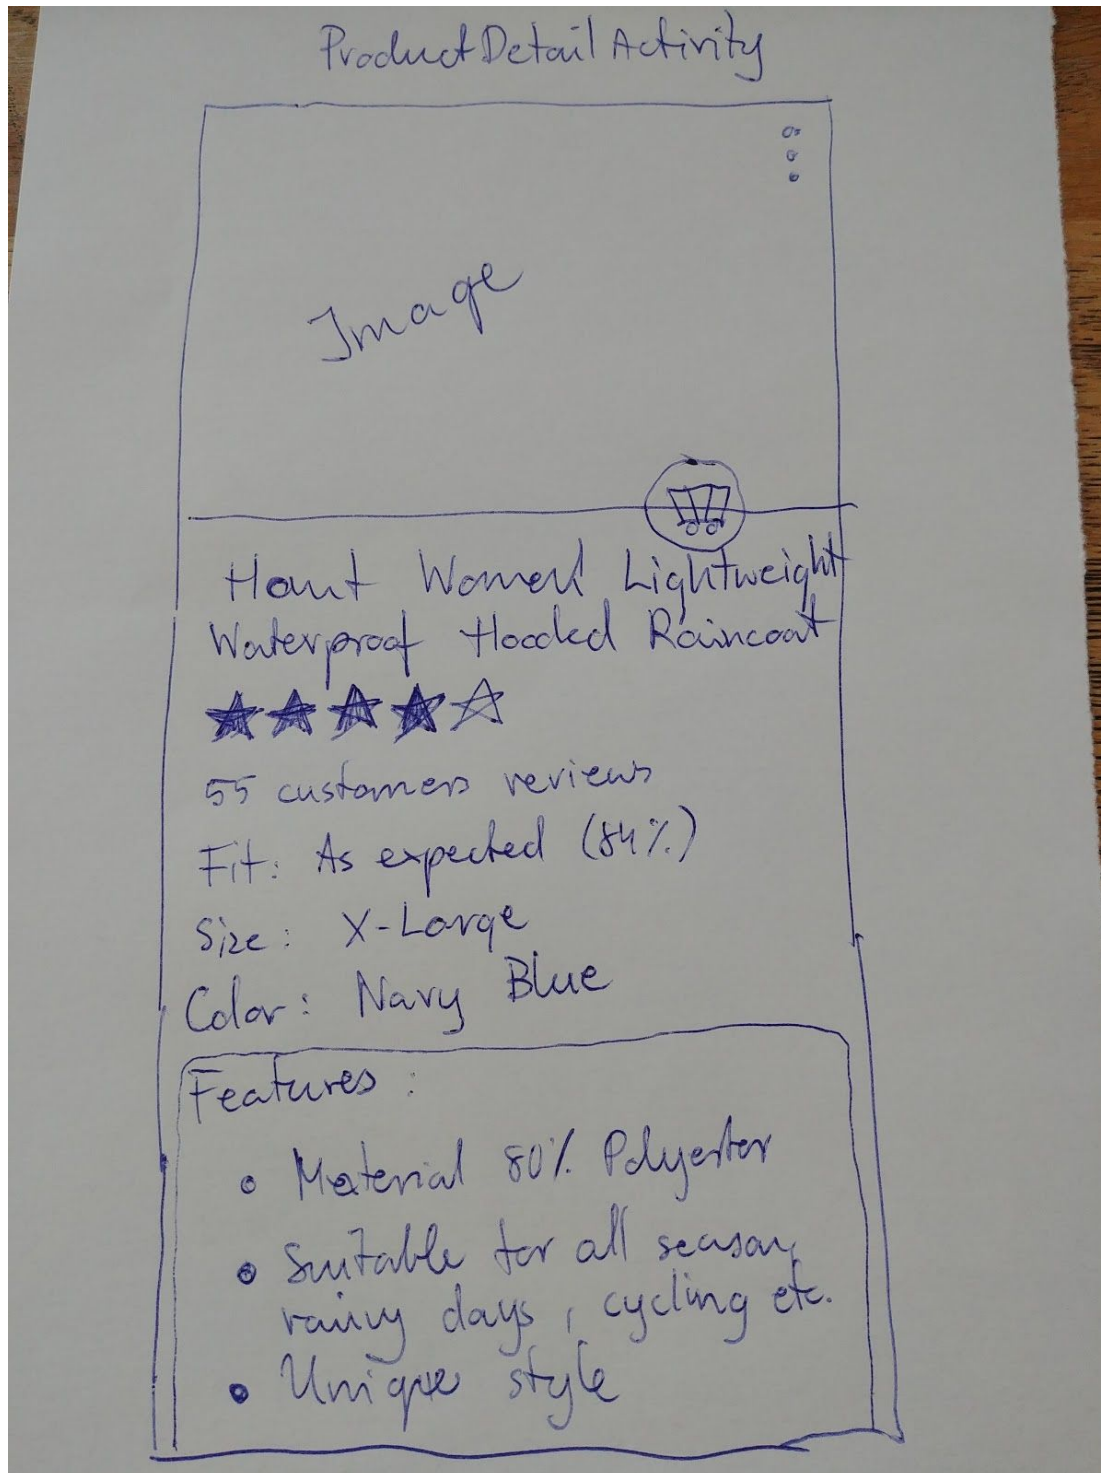 ProductDetailActivity
Image
Women's Lightweight
Waterproof Hooded Raincoat
55 customers reviews
Fit: As expected (84%)
Size: X-Large
Color: Navy Blue
Features:
Material 80% Polyester
Suitable for all season,
rainy days, cycling etc.
Unique style